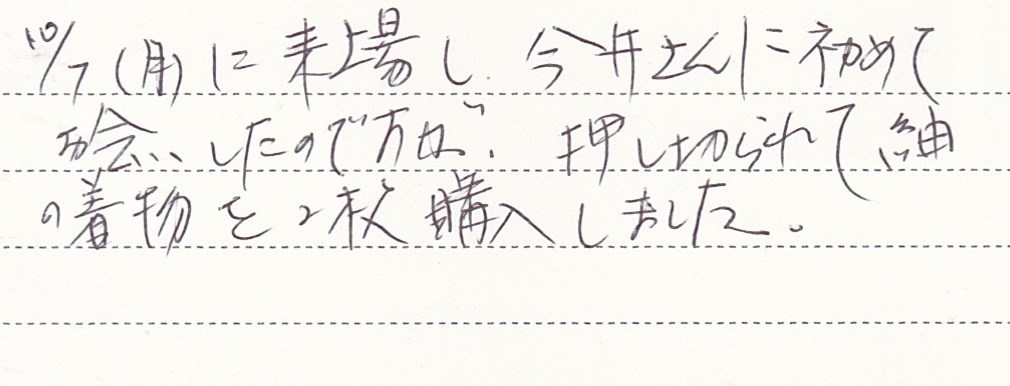 10/7(月)に来場し、今井さんに初めて
お会いしたのですが、押し切られて紬
の着物を2枚購入しました。